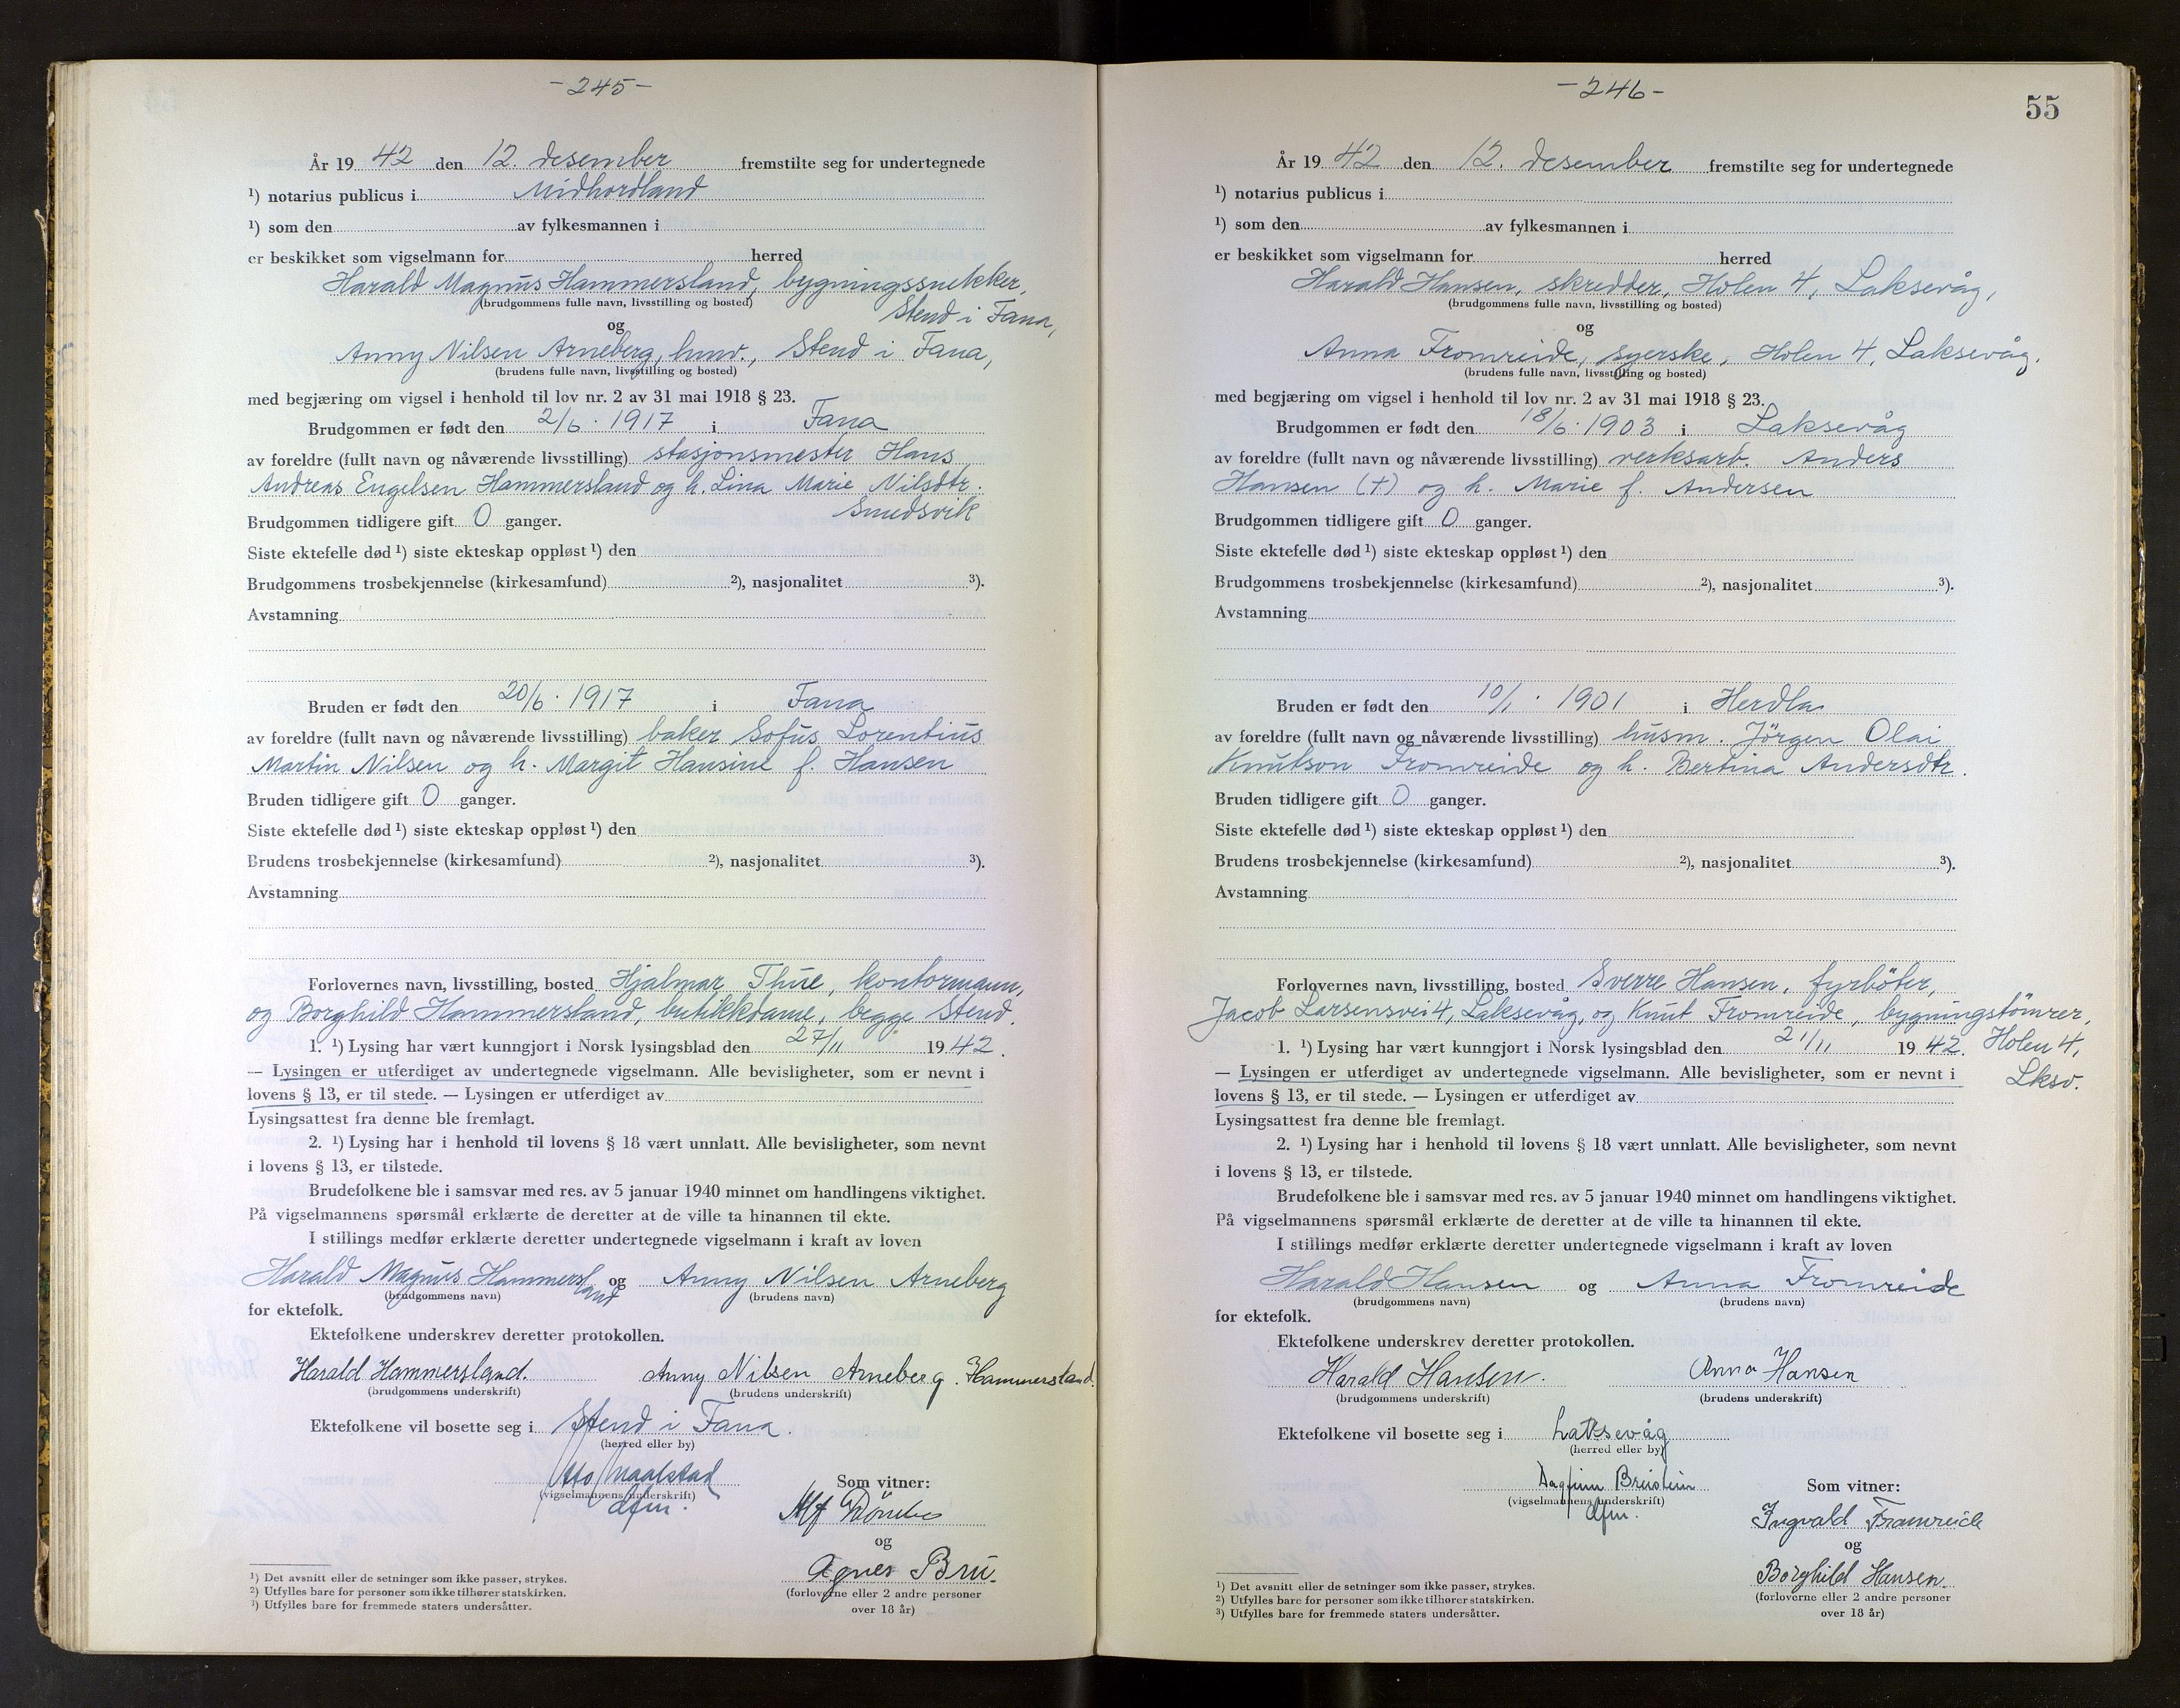 -245-
År 19 42 den 12. desember fremstilte seg for undertegnede
¹) notarius publicus i Midhordland
¹) som den av fylkesmannen i
er beskikket som vigselmann for herred
Harald Magnus Hammersland, bygningssnekker,
(brudgommens fulle navn, livsstilling og bosted)
Stend i Fana,
og
Anny Nilsen Arneberg, husv., Stend i Fana,
(brudens fulle navn, livsstilling og bosted)
med begjæring om vigsel i henhold til lov nr. 2 av 31 mai 1918 § 23.
Brudgommen er født den 2/6. 1917 i Fana
av foreldre (fullt navn og nåværende livsstilling) stasjonsmester Hans
Andreas Engelsen Hammersland og h. Lina Marie Nilsdtr.
Smedsvik
Brudgommen tidligere gift 0 ganger.
Siste ektefelle død ¹) siste ekteskap oppløst ¹) den
Brudgommens trosbekjennelse (kirkesamfund) ²), nasjonalitet ³).
Avstamning
Bruden er født den 20/6. 1917 i Fana
av foreldre (fullt navn og nåværende livsstilling) baker Sofus Lorentius
Martin Nilsen og h. Margit Hansine f. Hansen
Bruden tidligere gift 0 ganger.
Siste ektefelle død ¹) siste ekteskap oppløst ¹) den
Brudens trosbekjennelse (kirkesamfund) ²), nasjonalitet ³).
Avstamning
Forlovernes navn, livsstilling, bosted Hjalmar Thue, kontormann,
og Borghild Hammersland, butikkdame, begge Stend.
1. ¹) Lysing har vært kunngjort i Norsk lysingsblad den 27/11 1942.
— Lysingen er utferdiget av undertegnede vigselmann. Alle bevisligheter, som er nevnt i
lovens § 13, er til stede. — Lysingen er utferdiget av
Lysingsattest fra denne ble fremlagt.
2. ¹) Lysing har i henhold til lovens § 18 vært unnlatt. Alle bevisligheter, som nevnt
i lovens § 13, er tilstede.
Brudefolkene ble i samsvar med res. av 5 januar 1940 minnet om handlingens viktighet.
På vigselmannens spørsmål erklærte de deretter at de ville ta hinannen til ekte.
I stillings medfør erklærte deretter undertegnede vigselmann i kraft av loven
Harald Magnus Hammersland og Anny Nilsen Arneberg
(brudgommens navn) (brudens navn)
for ektefolk.
Ektefolkene underskrev deretter protokollen.
Harald Hammersland. Anny Nilsen Arneberg. Hammersland.
(brudgommens underskrift) (brudens underskrift)
Ektefolkene vil bosette seg i Stend i Fana.
(herred eller by)
Otto
(vigselmannens underskrift)
dfm.
Som vitner:
Alf
og
Agnes Bru.
(forloverne eller 2 andre personer
over 18 år)
¹) Det avsnitt eller de setninger som ikke passer, strykes.
²) Utfylles bare for personer som ikke tilhører statskirken.
³) Utfylles bare for fremmede staters undersåtter.
-246-
55
År 19 42 den 12. desember fremstilte seg for undertegnede
¹) notarius publicus i
¹) som den av fylkesmannen i
er beskikket som vigselmann for herred
Harald Hansen, skredder, Holen 4, Laksevåg,
(brudgommens fulle navn, livsstilling og bosted)
og
Anna Fromreide, syerske, Holen 4, Laksevåg.
(brudens fulle navn, livsstilling og bosted)
med begjæring om vigsel i henhold til lov nr. 2 av 31 mai 1918 § 23.
Brudgommen er født den 18/6. 1903 i Laksevåg
av foreldre (fullt navn og nåværende livsstilling) verksarb. Anders
Hansen (†) og h. Marie f. Andersen
Brudgommen tidligere gift 0 ganger.
Siste ektefelle død ¹) siste ekteskap oppløst ¹) den
Brudgommens trosbekjennelse (kirkesamfund) ²), nasjonalitet ³).
Avstamning
Bruden er født den 10/1. 1901 i Herdla
av foreldre (fullt navn og nåværende livsstilling) husm. Jörgen Olai
Knutson Fromreide og h. Bertina Andersdtr.
Bruden tidligere gift 0 ganger.
Siste ektefelle død ¹) siste ekteskap oppløst ¹) den
Brudens trosbekjennelse (kirkesamfund) ²), nasjonalitet ³).
Avstamning
Forlovernes navn, livsstilling, bosted Sverre Hansen, fyrböter,
Jacob Larsensvei 4, Laksevåg, og Knut Fromreide, bygningstömrer,
1. ¹) Lysing har vært kunngjort i Norsk lysingsblad den 21/11 1942. Holen 4,
— Lysingen er utferdiget av undertegnede vigselmann. Alle bevisligheter, som er nevnt i Lksv.
lovens § 13, er til stede. — Lysingen er utferdiget av
Lysingsattest fra denne ble fremlagt.
2. ¹) Lysing har i henhold til lovens § 18 vært unnlatt. Alle bevisligheter, som nevnt
i lovens § 13, er tilstede.
Brudefolkene ble i samsvar med res. av 5 januar 1940 minnet om handlingens viktighet.
På vigselmannens spørsmål erklærte de deretter at de ville ta hinannen til ekte.
I stillings medfør erklærte deretter undertegnede vigselmann i kraft av loven
Harald Hansen og Anna Fromreide
(brudgommens navn) (brudens navn)
for ektefolk.
Ektefolkene underskrev deretter protokollen.
Harald Hansen. Anna Hansen
(brudgommens underskrift) (brudens underskrift)
Ektefolkene vil bosette seg i Laksevåg
(herred eller by)
Dagfinn Breistein
(vigselmannens underskrift)
dfm.
Som vitner:
Ingvald Framreide
og
Borghild Hansen.
(forloverne eller 2 andre personer
over 18 år)
¹) Det avsnitt eller de setninger som ikke passer, strykes.
²) Utfylles bare for personer som ikke tilhører statskirken.
³) Utfylles bare for fremmede staters undersåtter.